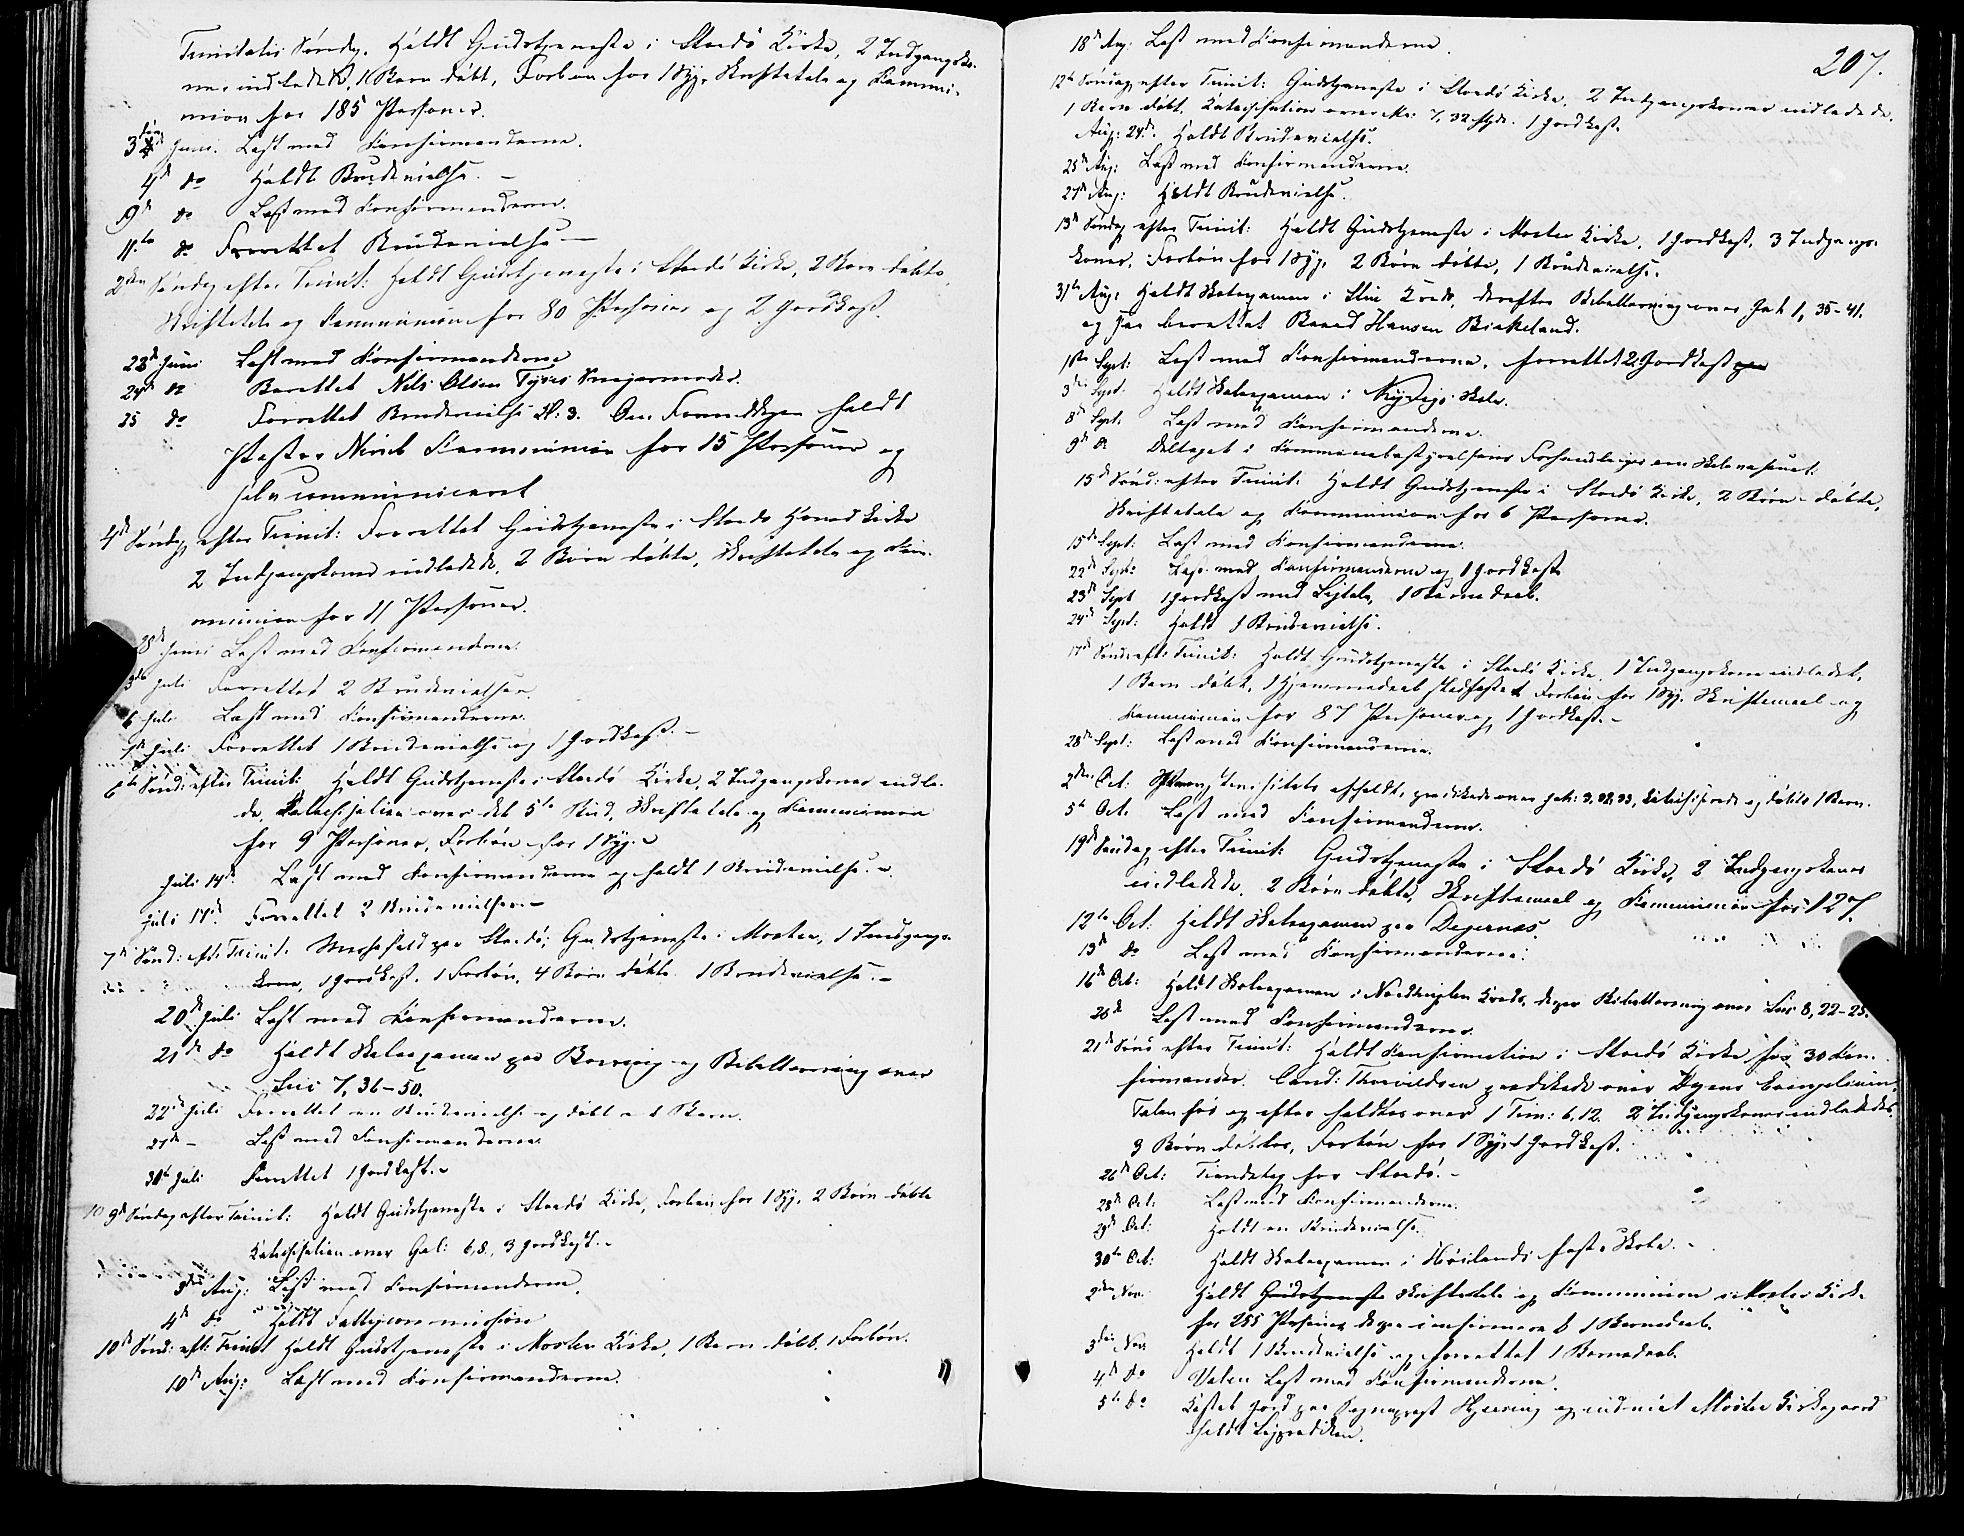 Trinitatis Søndag. Holdt Gudstjeneste i Stordø Kirke, 2 Indgangsko-
ner indledede, 1 Barn døbt, Forbøn for 1 Syg, Skriftetale og Kommu-
nion for 185 Personer.
3die Juni. Læst med Konfirmanderne.
4de do Holdt Brudevielse. —
9de do Læst med Konfirmanderne.
11te do Forrettet Brudevielse —
2den Søndag efter Trinit: Holdt Gudstjeneste i Stordø Kirke, 2 Børn døbte,
Skriftetale og Kommunion for 80 Personer og 2 Jordkast.
23de Juni Læst med Konfirmanderne
24de do Berettet Nils Olsen Tyses
25 do Forrettet Brudevielse Kl: 3. Om Formiddagen holdt
Pastor Nirik Kommunion for 15 Personer og
selv communiceret
4de Søndag efter Trinit: Forrettet Gudstjeneste i Stordø Hovedkirke
2 Indgangskoner indledede, 2 Børn døbte, Skriftetale og Kom-
munion for 11 Personer.
28de Juni Læst med Konfirmanderne.
3die Juli Forrettet 2 Brudevielser
6 Juli Læst med Konfirmanderne.
7de Juli Forrettet 1 Brudevielse og 1 Jordkast. —
6te Sønd: efter Trinit: Holdt Gudstjeneste i Stordø Kirke, 2 Indgangskoner indle-
de, Katechisation over det 5te Bud, Skriftetale og Kommunion
for 9 Personer, Forbøn for 1 Syg. —
Juli 14de. Læst med Konfirmanderne og holdt 1 Brudevielse. —
Juli 17de Forrettet 2 Brudevielser. —
7de Sønd: eft: Trinit. Messefald paa Stordø; Gudstjeneste i Moster, 1 Indgangs-
kone, 1 Jordkast. 1 Forbøn, 4 Børn døbte. 1 Brudevielse. —
20de Juli Læst med Konfirmanderne.
21de do Holdt Skoleexamen paa Borevig og Bibellæsning over
Luc 7, 36-50.
22de Juli Forrettet en Brudevielse og døbt 1 Barn.
27de — Læst med Konfirmanderne.
30te Juli Forrettet 1 Jordkast. —
10 9de Søndag efter Trinit: Holdt Gudstjeneste i Stordø Kirke, Forbøn for 1 Syg, 2 Børn døbte
Katechisation over Gal: 6,8., 3 Jordkast. —
3die Aug: Læst med Konfirmanderne.
4de do Holdt Fattigcommission
10de Sønd: eft: Trinit Holdt Gudstjeneste i Moster Kirke, 1 Barn døbt, 1 Forbøn.
10de Aug: Læst med Konfirmanderne.
207.
18de Aug: Læst med Konfirmanderne.
12te Søndag efter Trinit: Gudstjeneste i Stordø Kirke, 2 Indgangskoner indledede,
1 Barn døbt. Katechisation over Mc: 7, 32 1 Jordkast.
Aug: 24de. Holdt Brudevielse.
25de Aug: Læst med Konfirmanderne.
27de Aug: Holdt Brudevielse.
13de Søndag efter Trinit: Holdt Gudstjeneste i Moster Kirke, 1 Jordkast, 3 Indgangs-
koner, Forbøn for 1 Syg, 2 Børn døbte, 1 Brudevielse.
31te Aug: Holdt Skoleexamen i Kreds, derefter Bibellæsning over Joh 1, 35-41.
og saa berettet Baard Hansen Birkeland.
1ste Sept: Læst med Konfirmanderne, forrettet 2 Jordkast
3die Sept: Holdt Skoleexamen i Skole.
8de Sept. Læst med Konfirmanderne.
9de do Deltaget i Kommunebestyrelsens Forhandlinger om Skolevæsenet.
15de Sønd: efter Trinit: Holdt Gudstjeneste i Stordø Kirke, 2 Børn døbte,
Skriftetale og Kommunion for 6 Personer.
15de Sept: Læst med Konfirmanderne.
22de Sept: Læst med Konfirmanderne og 1 Jordkast
23de Sept 1 Jordkast med Ligtale, 1 Barnedaab.
24de Sept: Holdt 1 Brudevielse.
17de Sønd: eft: Trinit: Holdt Gudstjeneste i Stordø Kirke, 1 Indgangskone indledet,
1 Barn døbt, 1 Hjemmedaab stadfæstet Forbøn for 1 Syg. Skriftemaal og
Kommunion for 87 Personer og 1 Jordkast. —
28de Sept: Læst med Konfirmanderne.
2den Oct: afholdt, prædikede over Joh: 3, 32, 33, katechiserede og døbte 1 Barn.
5te Oct. Læst med Konfirmanderne.
19de Søndag efter Trinit: Gudstjeneste i Stordø Kirke, 2 Indgangskoner
indledede, 2 Børn døbte, Skriftemaal og Kommunion for 127.
12te Oct: Holdt Skoleexamen paa Digernes.
13de do Læst med Konfirmanderne.
16de Oct: Holdt Skoleexamen i Nordhuglen Kreds, desuden Bibellæsning over Luc 8, 22-25.
20de Læst med Konfirmanderne.
21de Sønd efter Trinit: Holdt Konfirmation i Stordø Kirke for 30 Kon-
firmander. Cand: Thorvildsen prædikede over Dagens Evangelium,
Talen før og efter holdtes over 1 Tim: 6, 12. 2 Indgangskoner indledede,
3 Børn døbtes, Forbøn for 1 Syg. 1 Jordkast.
26de Oct: Tiendetag for Stordø. —
28de Oct: Læst med Konfirmanderne.
29de Oct: Holdt en Brudevielse.
30te Oct: Holdt Skoleexamen i Høilands faste Skole. —
2den Nov. Holdt Gudstjeneste Skriftetale og Kommunion i Moster Kirke
for 255 Personer 1 Barnedaab.
3die Nov: Holdt 1 Brudevielse og forrettet 1 Barnedaab.
4de do Læst med Konfirmanderne.
5te do Kastet Jord paa Sogneprest og indviet Moster Kirkegaard
holdt Ligprædiken.